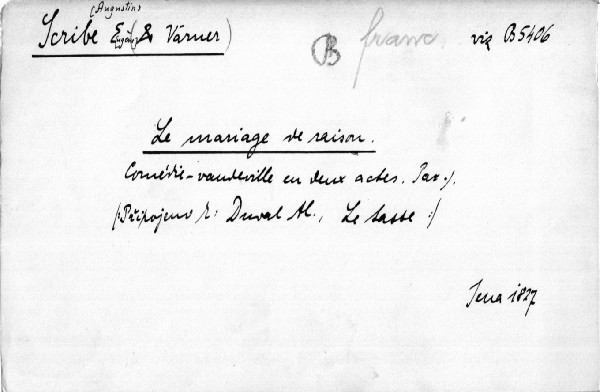 (Augustin)
Scribe Eugène & Varner) B franc. viz B5406
Le mariage de raison.
Comédie-vaudeville en deux actes. Par./.
/:Připojeno k: Duval Al., Le tasse :/
Jena 1827